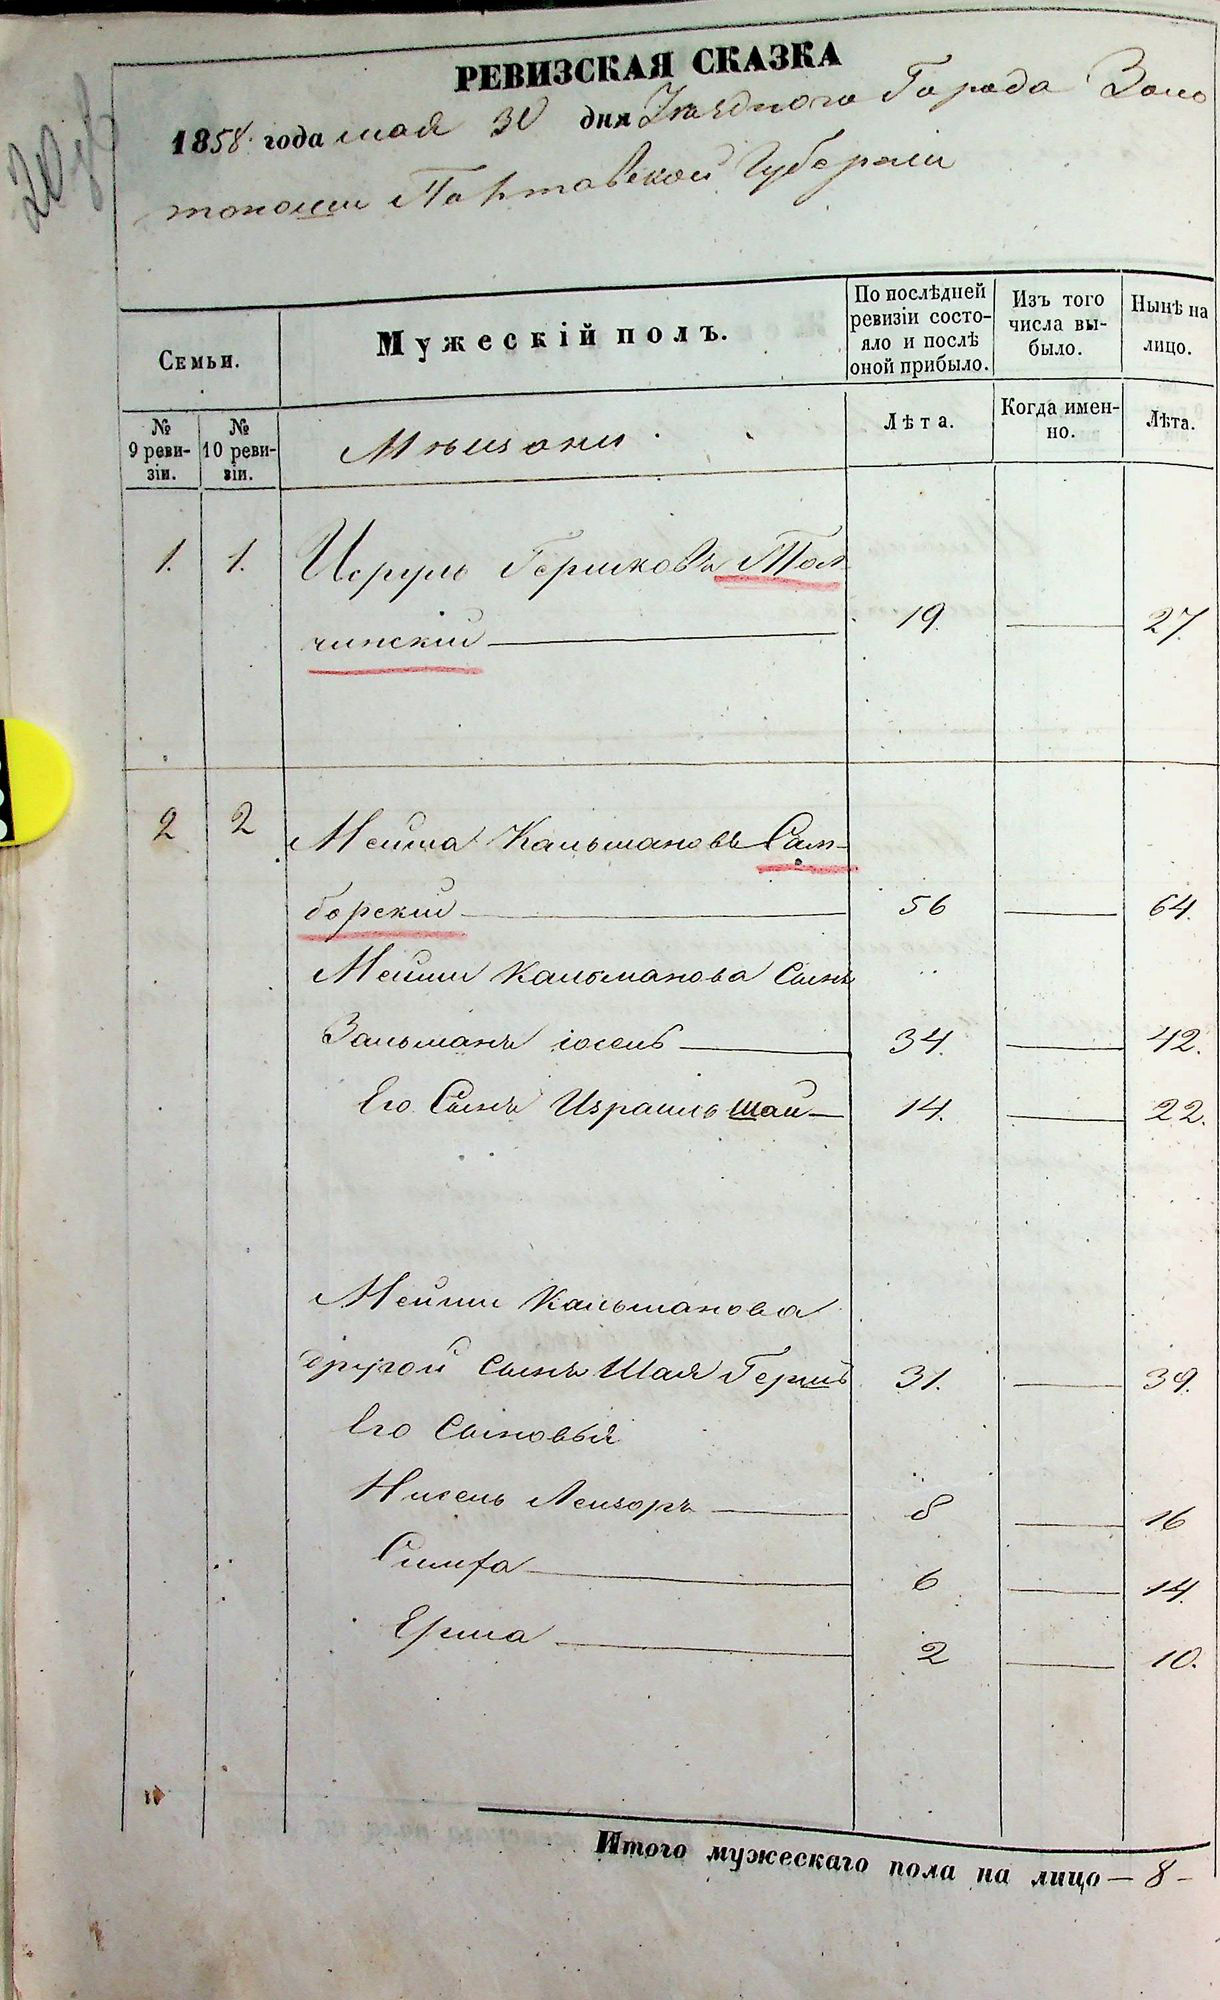 РЕВИЗСКАЯ СКАЗКА
1858 года мая 30 дня Уѣзднаго Города Золо
тоноши Полтавской Губерніи
Семьи.
Мужескій полъ.
По послѣдней ревизіи состояло и послѣ оной прибыло.
Изъ того числа выбыло.
Нынѣ на лицо.
№ 9 ревизіи.
№ 10 ревизіи.
Мѣщане
Лѣта.
Когда именно.
Лѣта.
1. 1. Исруль Гершковъ Тол
чинскій 19. 27.
2 2 Мейша Кальмановъ Сам-
борскій 56 64.
Мейши Кальманова Сынъ
Зальманъ іосель 34. 42.
Его Сынъ Израиль шая 14. 22.
Мейши Кальманова
другой сынъ Шая Гершъ 31. 39.
Его Сыновья
Нисель Лейзоръ 8 16
Симха 6 14.
2 10.
Итого мужескаго пола на лицо — 8 -